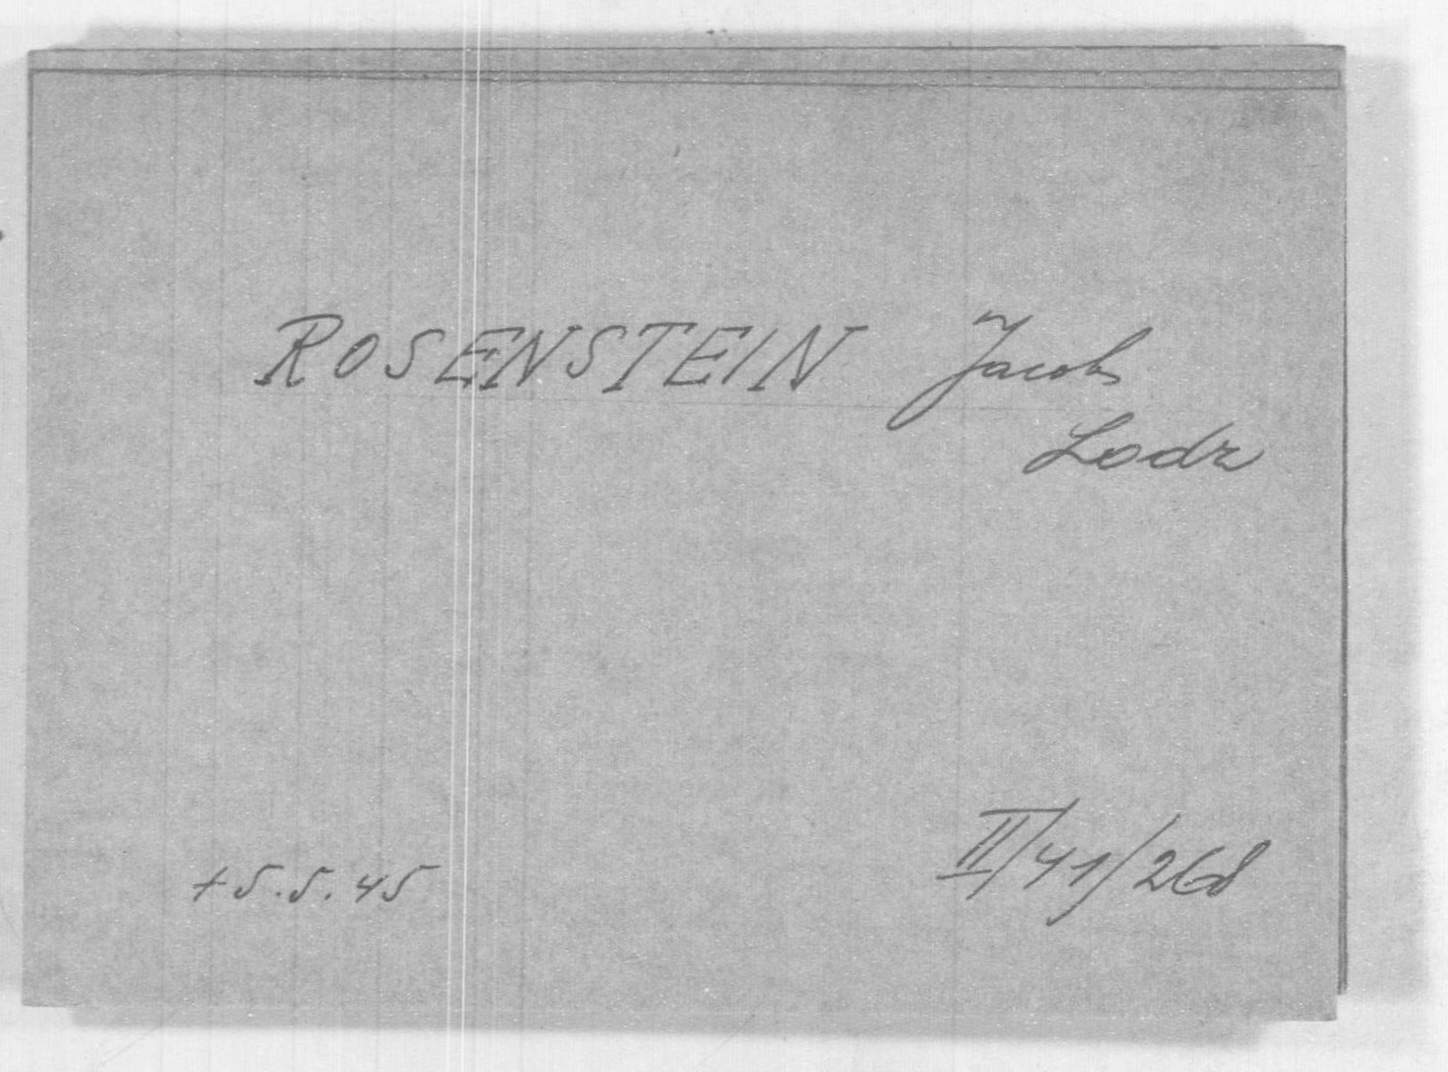 ROSENSTEIN Jacob
Lodz
+ 5.5.45
II/41/268